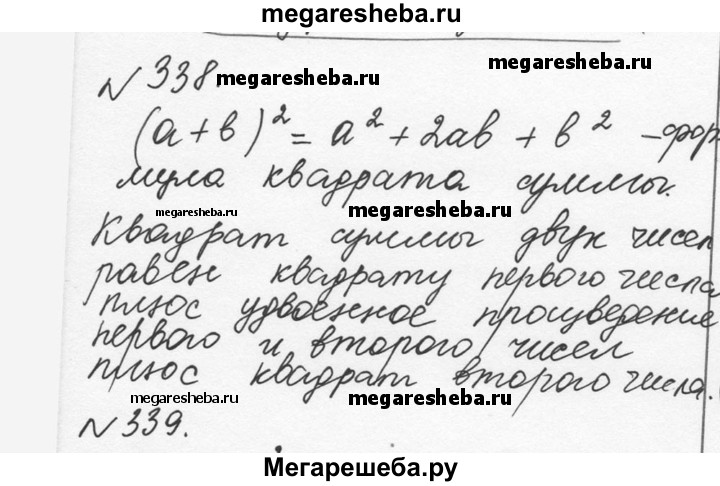 megaresheba.ru
№ 338.
megaresheba.ru
megaresheba.ru
(a+b)² = a² + 2ab + b² – фор-
мула квадрата суммы.
megaresheba.ru
megaresheba.ru
Квадрат суммы двух чисел
равен квадрату первого числа
плюс удвоенное произведение
megaresheba.ru
megaresheba.ru
первого и второго чисел
плюс квадрат второго числа.
megaresheba.ru
megaresheba.ru
№ 339.
Мегарешеба.ру